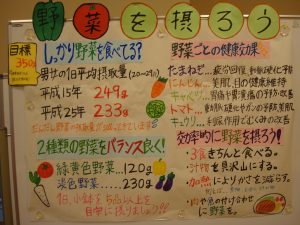 野菜を摂ろう
目標
350g
しっかり野菜を食べてる？
男性の1日平均摂取量
平成15年 249g
平成25年 233g
2種類の野菜をバランス良く！
緑黄色野菜…120g
淡色野菜…230g
1日、小鉢を5品以上を
目安に摂りましょう！！
野菜ごとの健康効果
たまねぎ…疲労回復、動脈硬化予防
にんじん…美肌、目の健康維持
キャベツ…胃腸や胃炎の予防・改善
トマト…動脈硬化やガンの予防、美肌
キュウリ…利尿作用、むくみの改善
効率的に野菜を摂ろう！
・3食きちんと食べる。
・汁物を具沢山にする。
・加熱によりかさを減らす。
・肉や魚の付け合わせ
に野菜を。